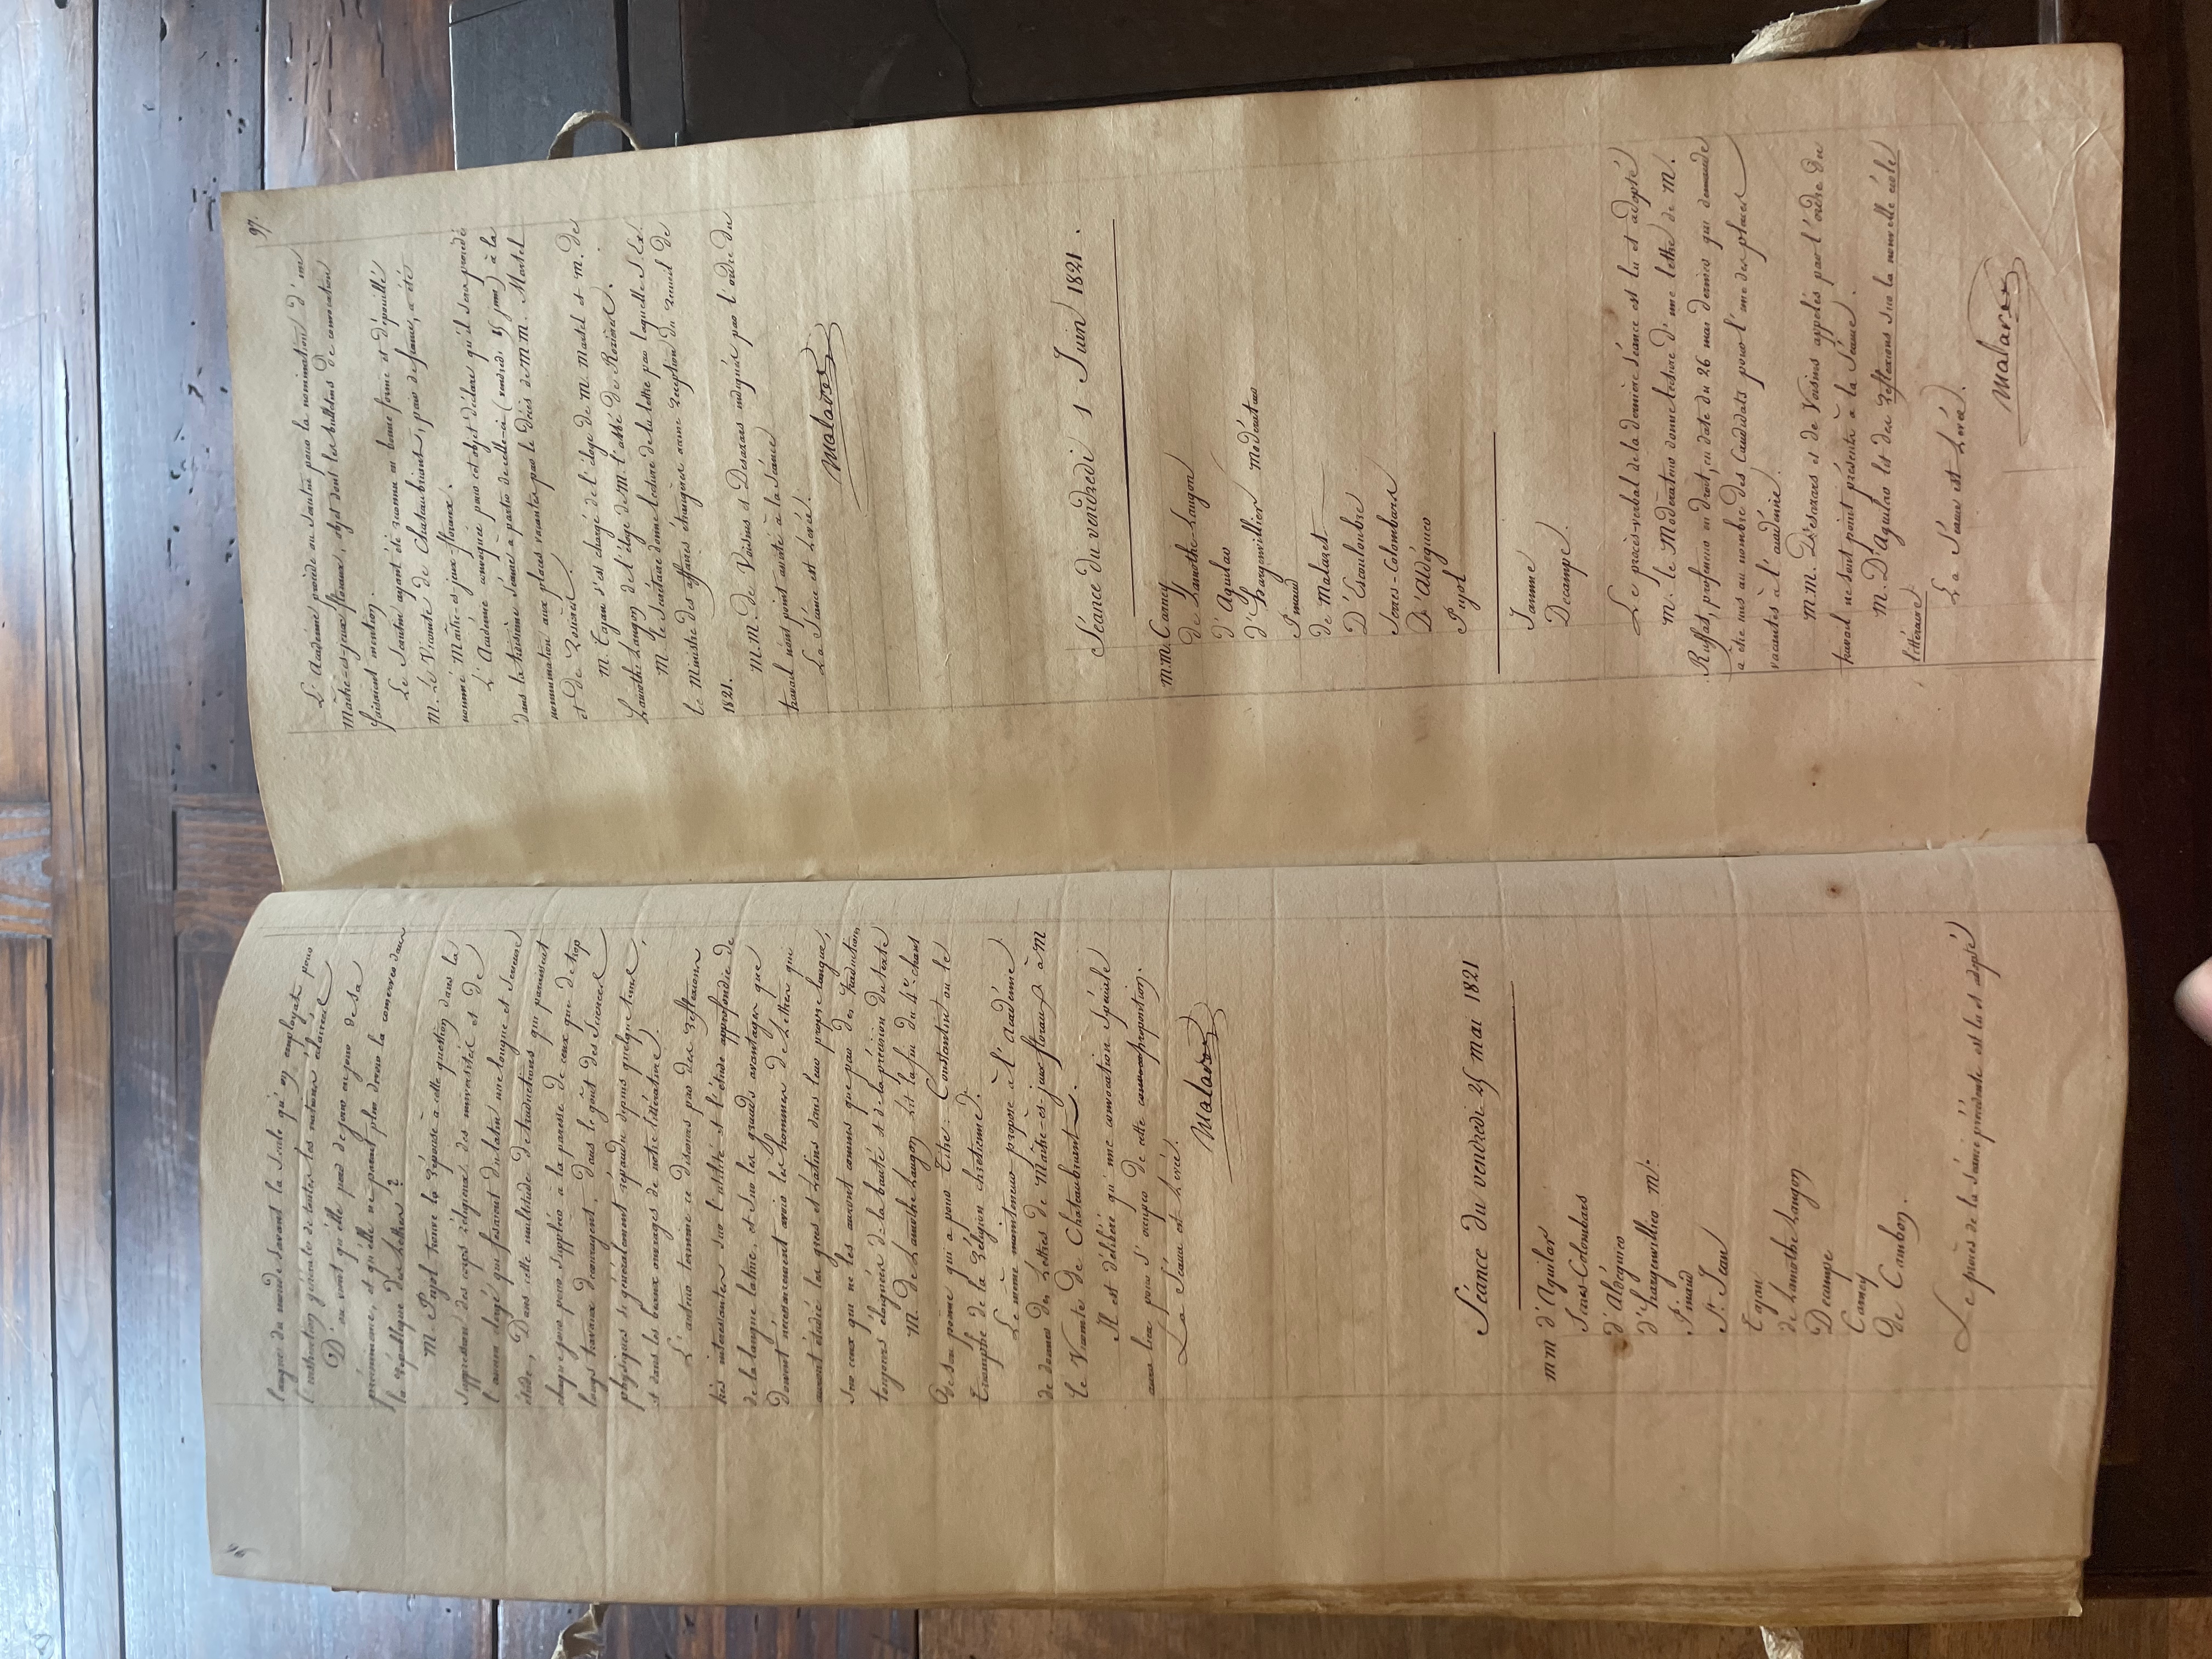 langues du monde savant la seule qu'on employat pour
l'instruction générale de toutes les nations éclairées
D'où vient qu'elle perd de jour en jour de sa
prééminence, et qu'elle ne parait plus devoir la conserver dans
la république des lettres ?
M. Pujol trouve la réponse à cette question dans la
suppression des corps religieux des universités et de
l'ancien clergé qui fesaient du latin une longue et serieuse
étude, Dans cette multitude de traductions qui paraissent
chaque jour pour suppléer à la paresse de ceux que de trop
longs travaux découragent, dans le goût des Sciences
physiques si généralement répandu depuis quelque tems,
et dans les beaux ouvrages de notre littérature.
L'auteur termine ce discours par des réflexions
très intéressantes sur l'utilité et l'étude approfondie de
de la langue latine, et sur les grands avantages que
doivent nécessairement avoir les hommes de Lettres qui
auront étudié les grecs et Latins dans leur propre langue,
sur ceux qui ne les auront connus que par des traductions
toujours éloignées de la beauté et de la précision du texte
M. de Lamothe Langon lit la fin du 4e. chant
de son poeme qui a pour titre : Constantin ou le
Triomphe de la Religion chretienne.
Le même mainteneur propose à l'Académie
de donner des Lettres de Maître-ès-jeux floraux à M
le Vicomte de Chateaubriant.
Il est délibéré qu'une convocation spéciale
aura lieu pour s'occuper de cette proposition.
La Séance est Levée.
Malaret
Séance du vendredi 25 mai 1821
mm d'Aguilar
Serres-Colombars
d'Aldéguier
d'hargenvillier m.
Pinaud
St. Jean
Tajan
de Lamothe Langon
Decampe
Carney
de Cambon.
Le procès de la séance précédente est lu et adopté
97.
L'Académie procède au Scrutin pour la nomination d'un
Maître-ès-jeux-floraux, objet dont les bulletins de convocation
faisaient mention.
Le Scrutin ayant été reconnu en bonne forme et dépouillé
M. Le Vicomte de Chateaubriant, pair de france, a été
nommé Maître-ès-jeux-floraux.
L'Académie convoquée pour cet objet déclare qu'il sera procédé
dans la troisième séance à partir de celle-ci (vendredi 15 juin) à la
nomination aux places vacantes par le décès de MM. Martel
et de Rozières.
M. Tajan s'est chargé de l'éloge de M. Martel et M. de
Lamothe Langon de l'éloge de M. l'abbé de Rozières.
M. le Secrétaire donne lecture de la lettre par laquelle S. Ex.
le Ministre des affaires étrangères accuse reception du recueil de
1821.
M.M. de Voisins et Desazars indiqués par l'ordre du
travail n'ont point assisté à la séance
La Séance est Levée.
Malaret
Séance du vendredi 1 Juin 1821.
M.M. Carney
de Lamothe-Langon
d'Aguilar
d'hargenvillier modérateur
Pinaud
de Malaret
D'Escouloubre
Serres-Colombars
D'Aldéguier
Pujol
Jamme
Decampe.
Le procès-verbal de la dernière séance est lu et adopté
M. le Modérateur donne lecture d'une lettre de M.
Ruffat, professeur en droit, en date du 26 mai dernier qui demande
à être mis au nombre des Candidats pour l'une des places
vacantes à l'académie.
M.M. Désazars et de Voisins appelés par l'ordre du
travail ne se sont point présentés à la Séance.
M. D'Aguilar lit des réflexions sur la nouvelle école
littéraire
La Séance est Levée.
Malaret